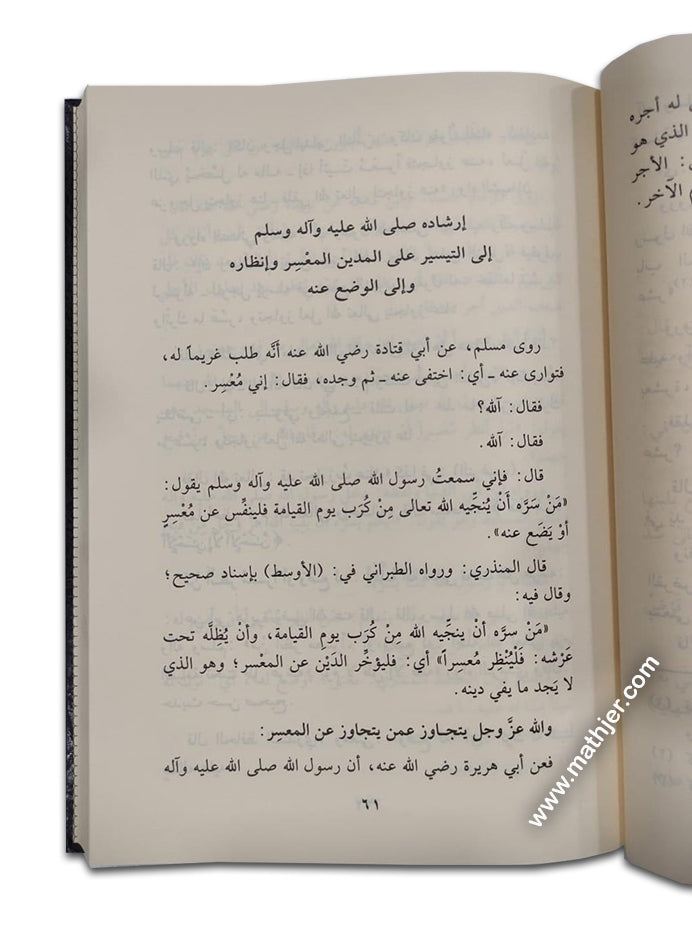 إرشاده صلى الله عليه وآله وسلم
إلى التيسير على المدين المعْسِر وإنظاره
وإلى الوضع عنه
روى مسلم، عن أبي قتادة رضي الله عنه أنَّه طلب غريماً له،
فتوارى عنه ـ أي: اختفى عنه ـ ثم وجده، فقال: إني مُعْسِر.
فقال: آلله؟
فقال: آلله.
قال: فإني سمعتُ رسول الله صلى الله عليه وآله وسلم يقول:
«مَنْ سَرَّه أَنْ يُنجِّيه الله تعالى مِنْ كُرَب يوم القيامة فلينفِّس عن مُعْسِرٍ
أوْ يَضَع عنه».
قال المنذري: ورواه الطبراني في: (الأوسط) بإسناد صحيح؛
وقال فيه:
«مَنْ سرَّه أنْ ينجِّيه الله مِنْ كُرَب يوم القيامة، وأنْ يُظِلَّه تحت
عَرْشه: فَلْيُنْظِر مُعسِراً» أي: فليؤخِّر الدَيْن عن المعْسر؛ وهو الذي
لا يَجد ما يفي دينه.
والله عزَّ وجل يتجـاوز عمن يتجاوز عن المعسِر:
فعن أبي هريرة رضي الله عنه، أن رسول الله صلى الله عليه وآله
٦١
له أجره
الذي هو
: الأجر
الآخر.
www.mathjer.com